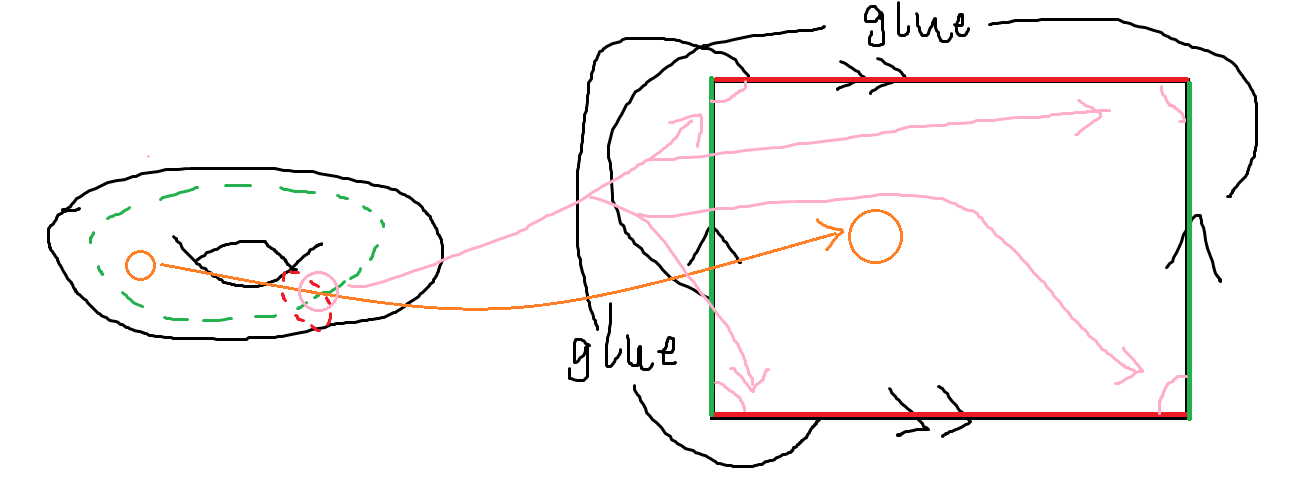 glue
glue